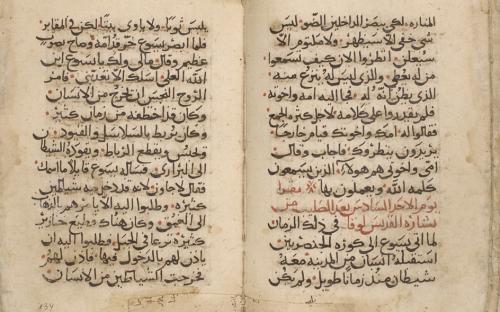 المناره. لكي يبصر الداخلين الضو. ليس
شي خفي الا سيظهر. ولا مكتوم الا
سيعلن. انظروا الان كيف تسمعوا
من له يعطى. والذي ليس له ينزع منه
الذي يظن انه له. فجا اليه امه واخوته
فلم يقدروا على كلامه لاجل كثره الجمع
فقالوا له امك واخوتك قيام خارجا.
يريدون ينظروك. فاجاب وقال
امي واخوتي هم هولاء الذين يسمعون
كلمه الله ويعملون بها
يوم الاحد السادس بعد الصليب من
بشاره القديس لوقا. في ذلك الزمان
لما اتى يسوع الى كوره
استقبله انسان من المدينه معه
شيطان منذ زمانا طويل. ولم يكن
يلبس ثوبا. ولا ياوي بيتا لكن في المقابر
فلما ابصر يسوع خر قدامه وصاح بصوت
عظيم وقال مالي ولك يا يسوع ابن
الله العلي. اسلك الا تعذبني. فامر
الروح النجس ان يخرج من الانسان
وكان قد اختطفه من زمان كثير
وكان يربط بالسلاسل والقيود.
ويحبس ويقطع الرباط. ويقوده الشيطان
الى البراري. فساله يسوع قايلا ما اسمك
فقال لاجاون. لانه قد دخل فيه شياطين
كثيره. وطلبوا اليه الا يامرهم بالذهاب
الى العمق. وكان هناك قطيع خنازير
كثيره ترعى في الجبل. فطلبوا اليه ان
ياذن لهم بالدخول فيها. فاذن لهم
فخرجت الشياطين من الانسان
134